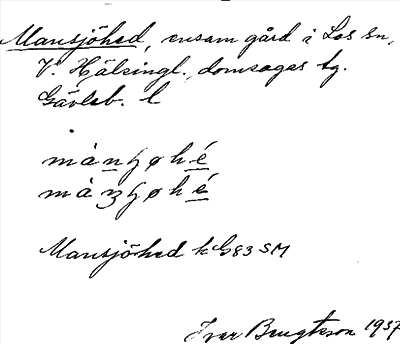 Mansjöhed, ensam gård i Los sn,
V. Hälsingl., domsagas tg.
Gävleb. l
mànʃøhé
màʒʃøhé
Mansjöhed k G83 SM
Ivar Bengtsson 1937